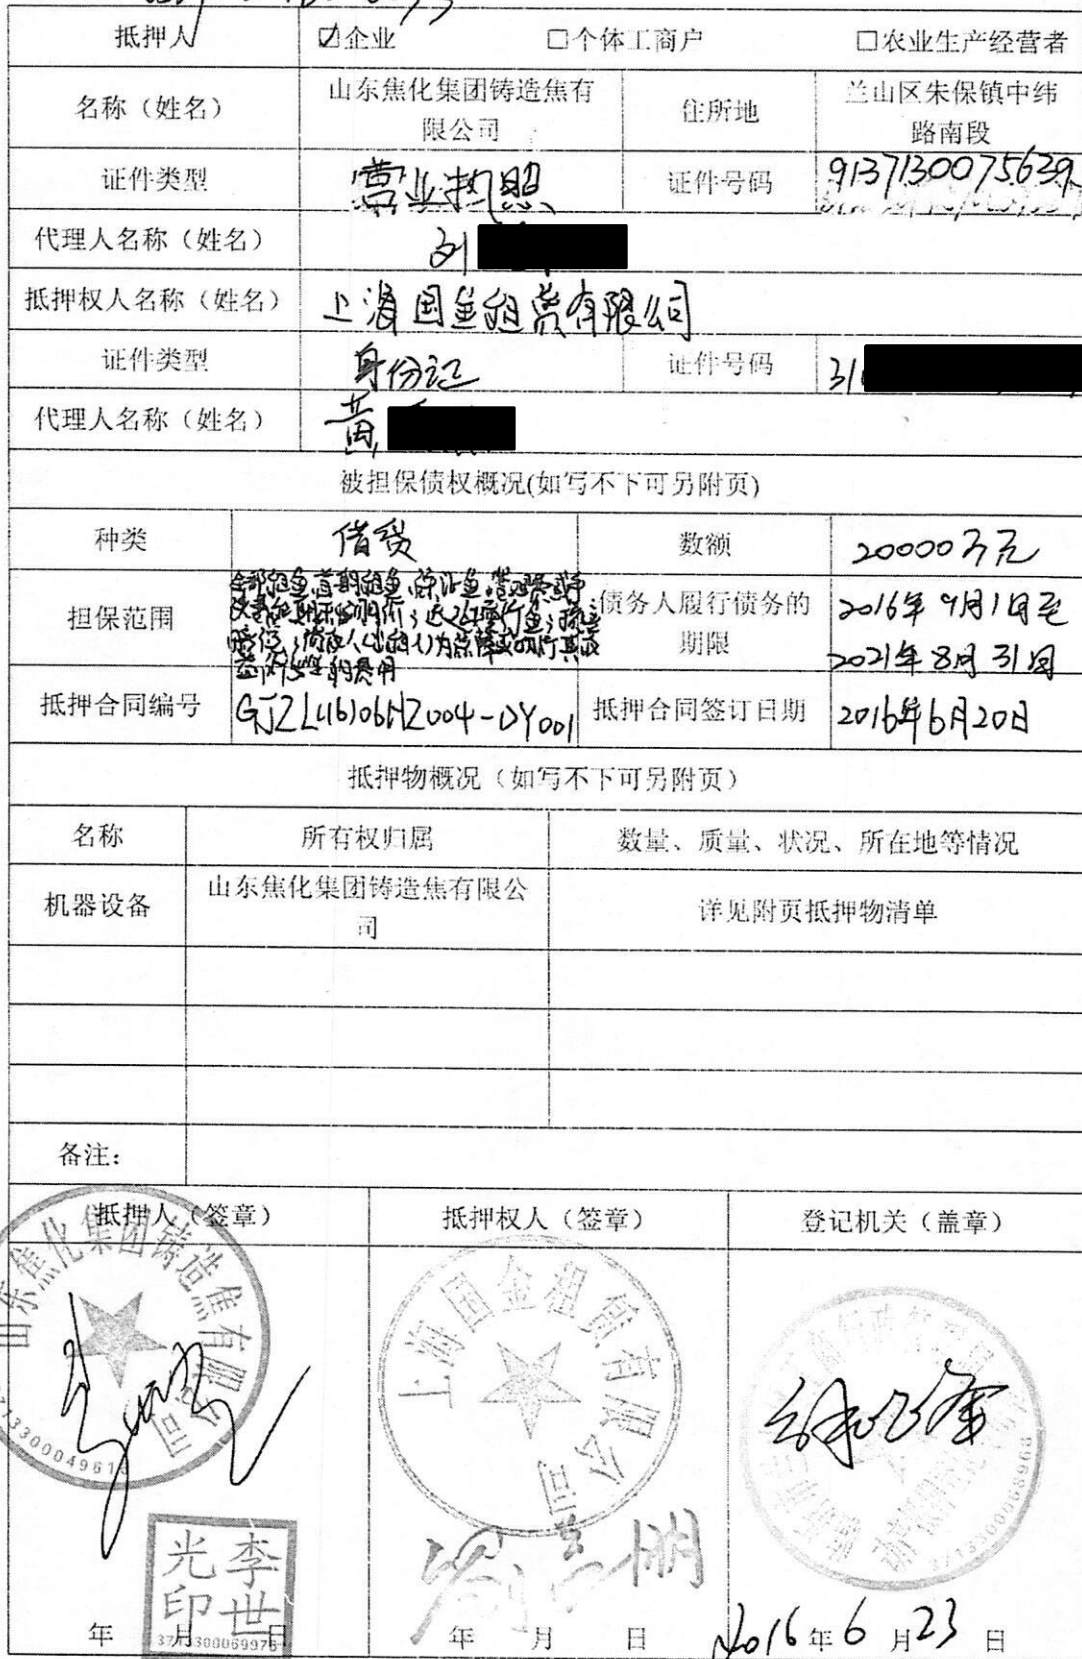 抵押人 ☑企业 □个体工商户 □农业生产经营者
名称（姓名） 山东焦化集团铸造焦有限公司 住所地 兰山区朱保镇中纬路南段
证件类型 营业执照 证件号码 9137130075639
代理人名称（姓名） 刘
抵押权人名称（姓名） 上海国金租赁有限公司
证件类型 身份证 证件号码 31
代理人名称（姓名） 黄
被担保债权概况(如写不下可另附页)
种类 借贷 数额 20000万元
担保范围 全部租金、首期租金 债务人履行债务的期限 2016年9月1日至2021年8月31日
抵押合同编号 GJZL(16)06HZ004-DY001 抵押合同签订日期 2016年6月20日
抵押物概况（如写不下可另附页）
名称 所有权归属 数量、质量、状况、所在地等情况
机器设备 山东焦化集团铸造焦有限公司 详见附页抵押物清单
备注：
抵押人（签章） 抵押权人（签章） 登记机关（盖章）
山东焦化集团铸造焦有限公司
上海国金租赁有限公司
李世光印
3713300069976
年 月 日 年 月 日 2016年6月23日